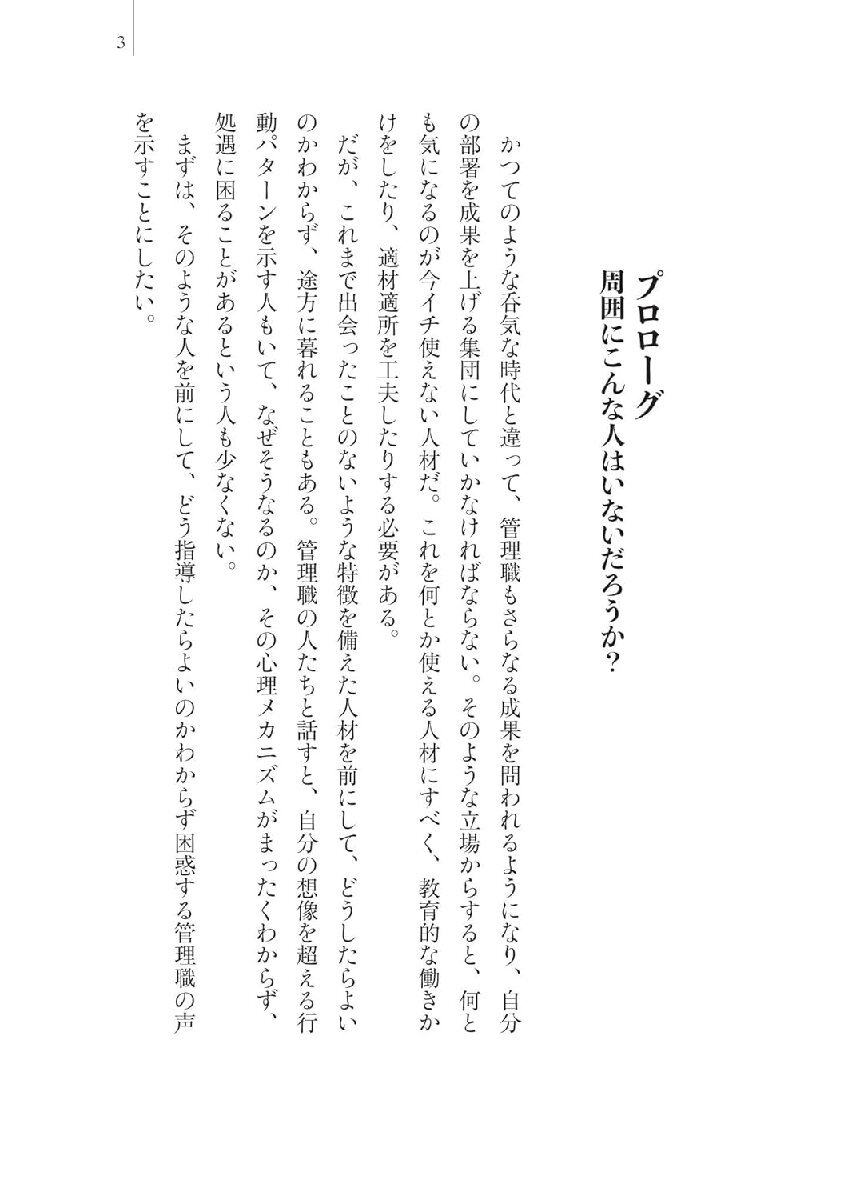 3
プロローグ
周囲にこんな人はいないだろうか？
かつてのような呑気な時代と違って、管理職もさらなる成果を問われるようになり、自分
の部署を成果を上げる集団にしていかなければならない。そのような立場からすると、何と
も気になるのが今イチ使えない人材だ。これを何とか使える人材にすべく、教育的な働きか
けをしたり、適材適所を工夫したりする必要がある。
だが、これまで出会ったことのないような特徴を備えた人材を前にして、どうしたらよい
のかわからず、途方に暮れることもある。管理職の人たちと話すと、自分の想像を超える行
動パターンを示す人もいて、なぜそうなるのか、その心理メカニズムがまったくわからず、
処遇に困ることがあるという人も少なくない。
まずは、そのような人を前にして、どう指導したらよいのかわからず困惑する管理職の声
を示すことにしたい。